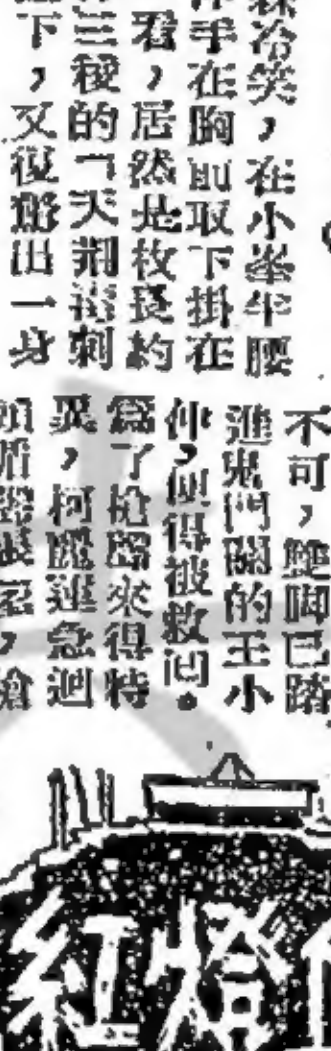 冷笑，在小峯半腰
手在胸前取下掛在
看，居然是枚長約
三稜的「天荆毒刺
下，又復露出一身
不可，雙脚已踏
進鬼門關的王小
仲，便得被救回。
爲了槍路來得特
異，柯麗蓮急迴
紅燈